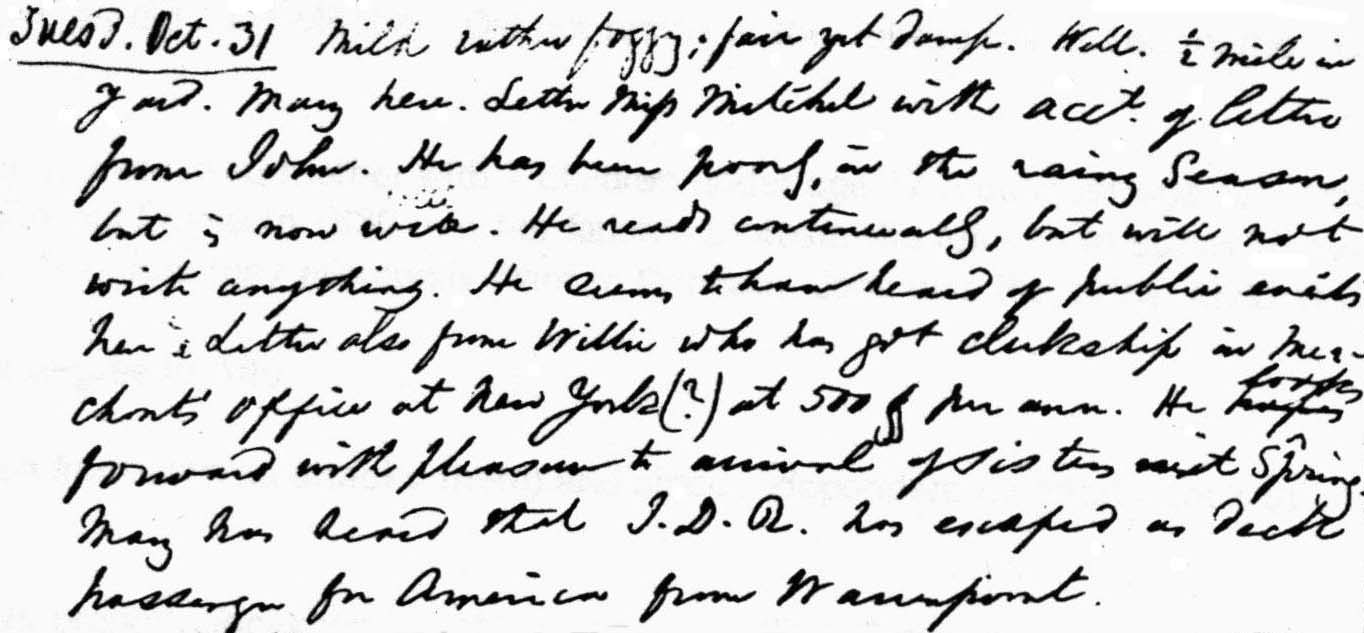 Tuesd. Oct. 31 Mild rather foggy; fair yet damp. Well. ½ mile in
yard. Mary here. Letter Miss Mitchel with acct. of letter
from John. He has been poorly, in the rainy Season,
but is now well. He reads continually, but will not
write anything. He seems to have heard of public events
here. Letter also from Willie who has got clerkship in Mer-
chant's office at New York (?) at 500 $ per ann. He looks
forward with pleasure to arrival of sisters next Spring.
Mary has heard that J. D. R. has escaped as deck
passenger for America from Warrenpoint.